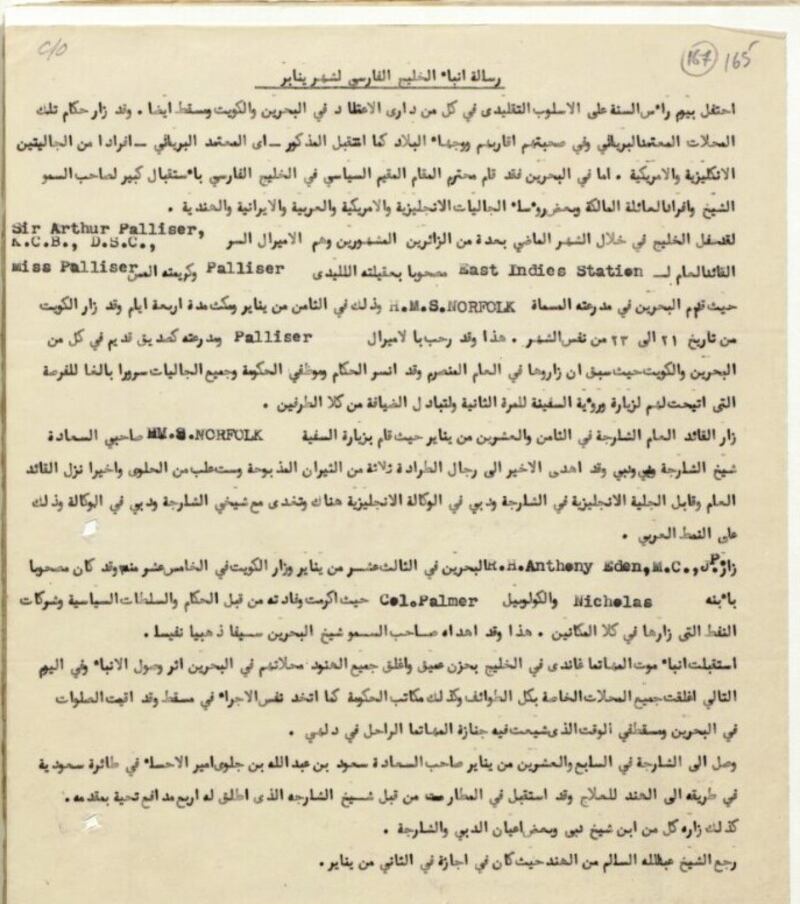 C/O
167 165
رسالة انباء الخليج الفارسي لشهر يناير
احتفل بيوم راءس السنة على الاسلوب التقليدى في كل من دارى الاعتقاد في البحرين والكويت ومسقط ايضا . وقد زار حكام تلك
المحلات المعتمدالبريطاني وفي صحبتهم اقاربهم ووجهاء البلاد كما استقبل المذكور ــ اى المعتمد البريطاني ــ افرادا من الجاليتين
الانكليزية والامريكية . اما في البحرين فقد قام محترم المقام المقيم السياسي في الخليج الفارسي باءستقبال كبير لصاحب السمو
الشيخ وافرادالعائلة المالكة وبعض روءساء الجاليات الانجليزية والامريكية والعربية والايرانية والهندية .
لقدحفل الخليج في خلال الشهر الماضي بعدة من الزائرين المشهورين وهم الاميرال السر Sir Arthur Palliser, K.C.B., D.S.C.,
القائدالعام لـ East Indies Station مصحوبا بعقيلته الليدى Palliser وكريمته المس Miss Palliser
حيث قدم البحرين في مدرعته المسماة H.M.S.NORFOLK وذلك في الثامن من يناير ومكث مدة اربعة ايام وقد زار الكويت
من تاريخ ٢١ الى ٢٣ من نفس الشهر . هذا وقد رحب با لاميرال Palliser ومدرعته كصديق قديم في كل من
البحرين والكويت حيث سبق ان زاروها في العام المنصرم وقد انسر الحكام وموظفي الحكومة وجميع الجاليات سرورا بالغا للفرصة
التى اتيحت لهم لزيارة وروءية السفينة للمرة الثانية ولتبادل الضيافة من كلا الطرفين .
زار القائد العام الشارجة في الثامن والعشرين من يناير حيث قام بزيارة السفية HM.S.NORFOLK صاحبي السعادة
شيخ الشارجة ودبي وقد اهدى الاخير الى رجال الطرادة ثلاثة من الثيران المذبوحة وست علب من الحلوى واخيرا نزل القائد
العام وقابل الجلية الانجليزية في الشارجة ودبي في الوكالة الانجليزية هناك وتغدى مع شيخي الشارجة ودبي في الوكالة وذلك
على النمط العربي .
زار R.H.Anthony Eden,M.C.,J.P. البحرين في الثالث عشر من يناير وزار الكويت في الخامس عشر منه وقد كان مصحوبا
باءبنه Nicholas والكولونيل Col.Palmer حيث اكرمت وفادته من قبل الحكام والسلطات السياسية وشركات
النفط التى زارها في كلا المكانين . هذا وقد اهداه صاحب السمو شيخ البحرين سيفا ذهبيا نفيسا .
استقبلت انباء موت المهاتما غاندى في الخليج بحزن عميق واغلق جميع الهنود محلاتهم في البحرين اثر وصول الانباء وفي اليوم
التالي اغلقت جميع المحلات الخاصة بكل الطوائف وكذلك مكاتب الحكومة كما اتخد نفس الاجراء في مسقط وقد اقيمت الصلوات
في البحرين ومسقط في الوقت الذى شيعت فيه جنازة المهاتما الراحل في دلهي .
وصل الى الشارجة في السابع والعشرين من يناير صاحب السعادة سعود بن عبد الله بن جلوى امير الاحساء في طائرة سعودية
في طريقه الى الهند للعلاج وقد استقبل في المطار من قبل شيخ الشارجه الذى اطلق له اربع مدافع تحية بمقدمه .
كذلك زاره كل من ابن شيخ دبى وبعض اعيان الدبي والشارجة .
رجع الشيخ عبدالله السالم من الهند حيث كان في اجازة في الثاني من يناير .